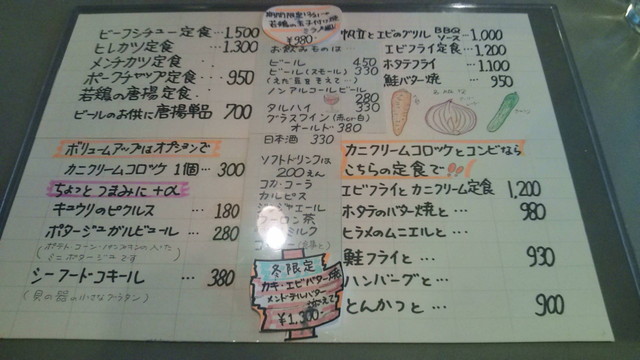 ビーフシチュー定食…1,500
ヒレカツ定食…1,300
メンチカツ定食
ポークチャップ定食…950
若鶏の唐揚定食
ビールのお供に唐揚単品 700
ボリュームアップはオプションで
カニクリームコロッケ 1個…300
ちょっとつまみに +α
キュウリのピクルス…180
ポタージュガルビュール…280
シーフード・コキール…380
¥980
お飲みものは
ビール 450
ビール(スモール) 330
(えだ豆を添えて…)
ノンアルコールビール
280
タルハイ 330
グラスワイン(赤or白)
オールド 380
日本酒 330
ソフトドリンクは
200えん
コカ・コーラ
カルピス
ジンジャエール
ウーロン茶
ミルク
冬限定
カキ・エビバター焼
メンド・テルバター
添えて
¥1,300-
帆立とエビのグリル BBQソース…1,000
エビフライ定食…1,200
ホタテフライ…1,100
鮭バター焼…950
カニクリームコロッケとコンビなら
こちらの定食で!!
エビフライとカニクリーム定食 1,200
ホタテのバター焼と… 980
ヒラメのムニエルと…
鮭フライと… 930
ハンバーグと…
とんかつと… 900